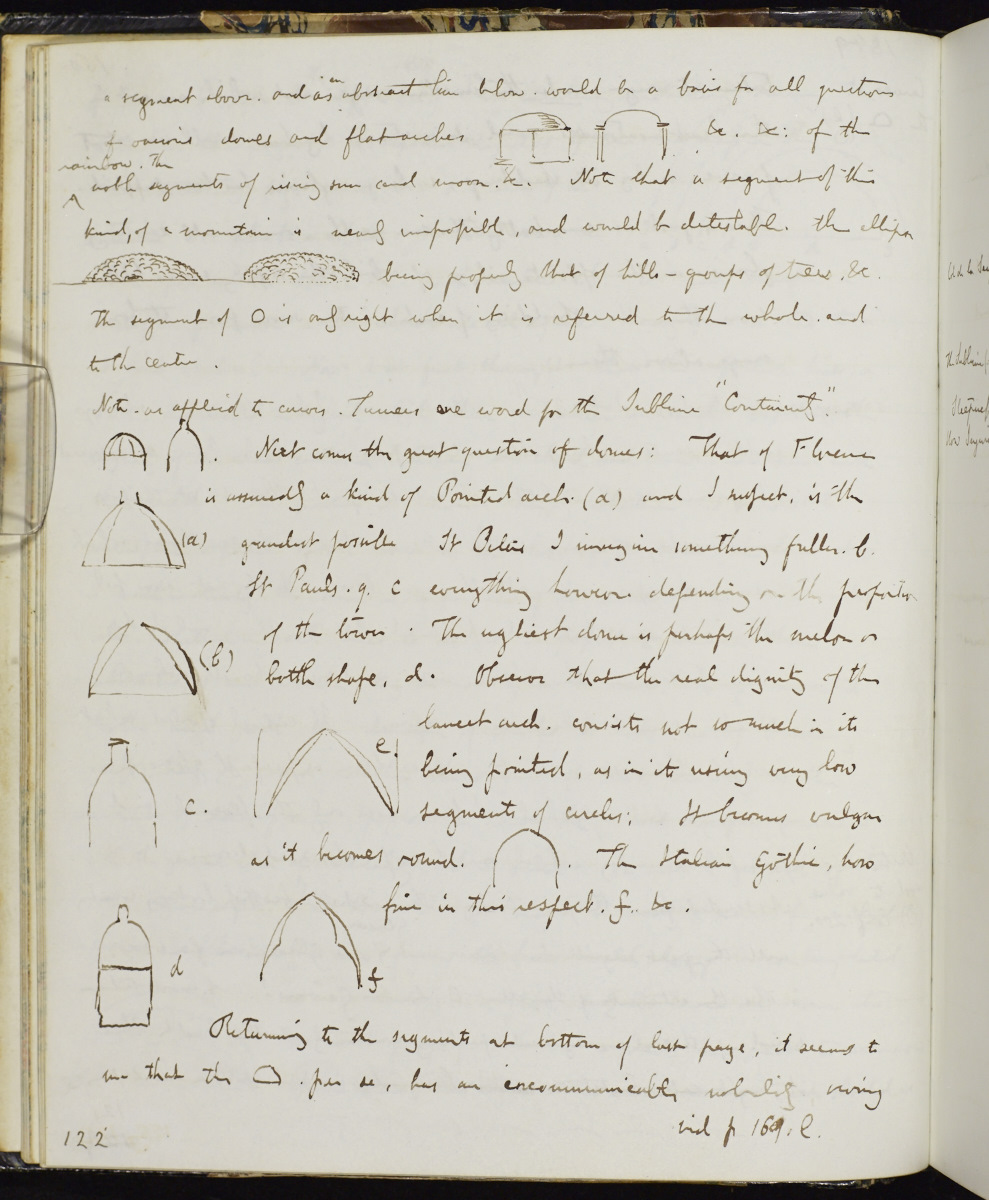 a segment above. and as an abstract line below. would be a basis for all questions
of various domes and flat arches &c. &c: of the
rainbow. the
noble segments of rising sun and moon. &c. Note that a segment of this
kind, of a mountain is nearly impossible, and would be detestable. the ellipse
being properly that of hills - groups of trees, &c.
the segment of O is only right when it is referred to the whole. and
to the centre.
Note. as applied to curves. Turners one word for the Sublime "Continuity".
Next comes the great question of domes: That of Florence
is assuredly a kind of Pointed arch. (a) and I suspect, is the
(a) grandest possible St Peters I imagine something fuller. b.
St Pauls. q. c everything however depending on the proportion
of the tower. The ugliest dome is perhaps the melon or
(b) bottle shape, d. Observe that the real dignity of the
lancet arch. consists not so much in its
e. being pointed, as in its using very low
c. segments of circles; It becomes vulgar
as it becomes round. The Italian Gothic, how
fine in this respect. f. &c.
d
f
Returning to the segments at bottom of last page, it seems to
me that the per se, has an incommunicable nobility owing
vid p 169. l.
122